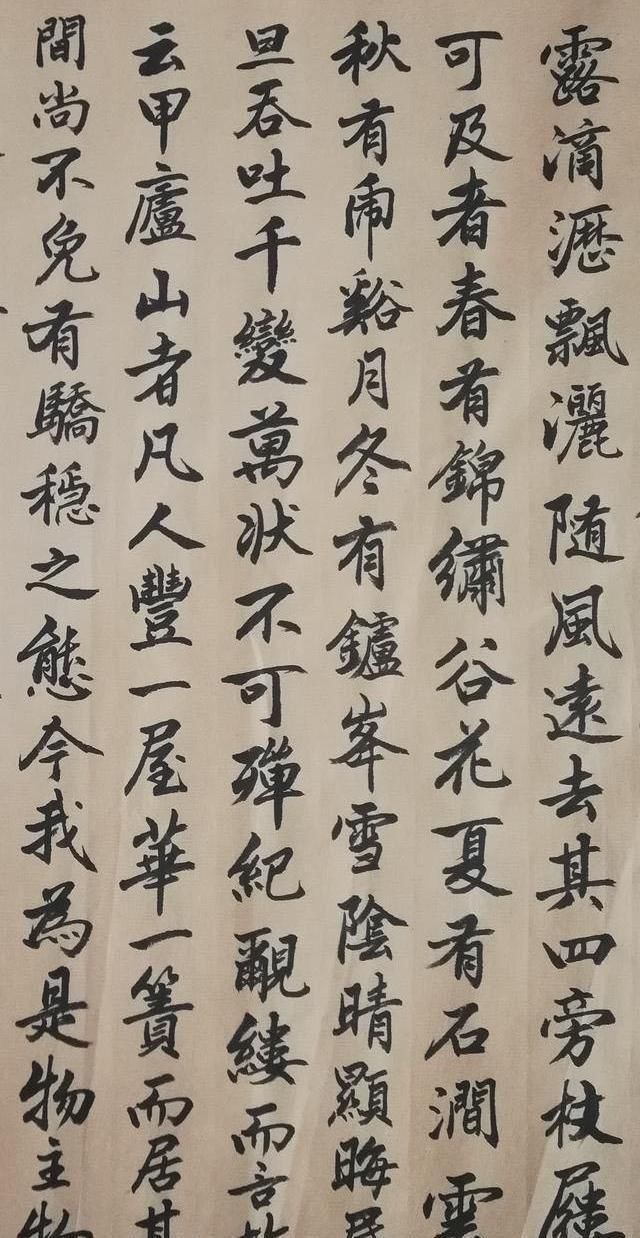 露滴瀝飄灑随風遠去其四旁杖屨
可及者春有錦繡谷花夏有石澗雲
秋有乕谿月冬有鑪峯雪陰晴顯晦
旦吞吐千變萬状不可殫紀覼縷而言
云甲廬山者凡人豐一屋華一簀而居其
間尚不免有驕穩之態今我為是物主物